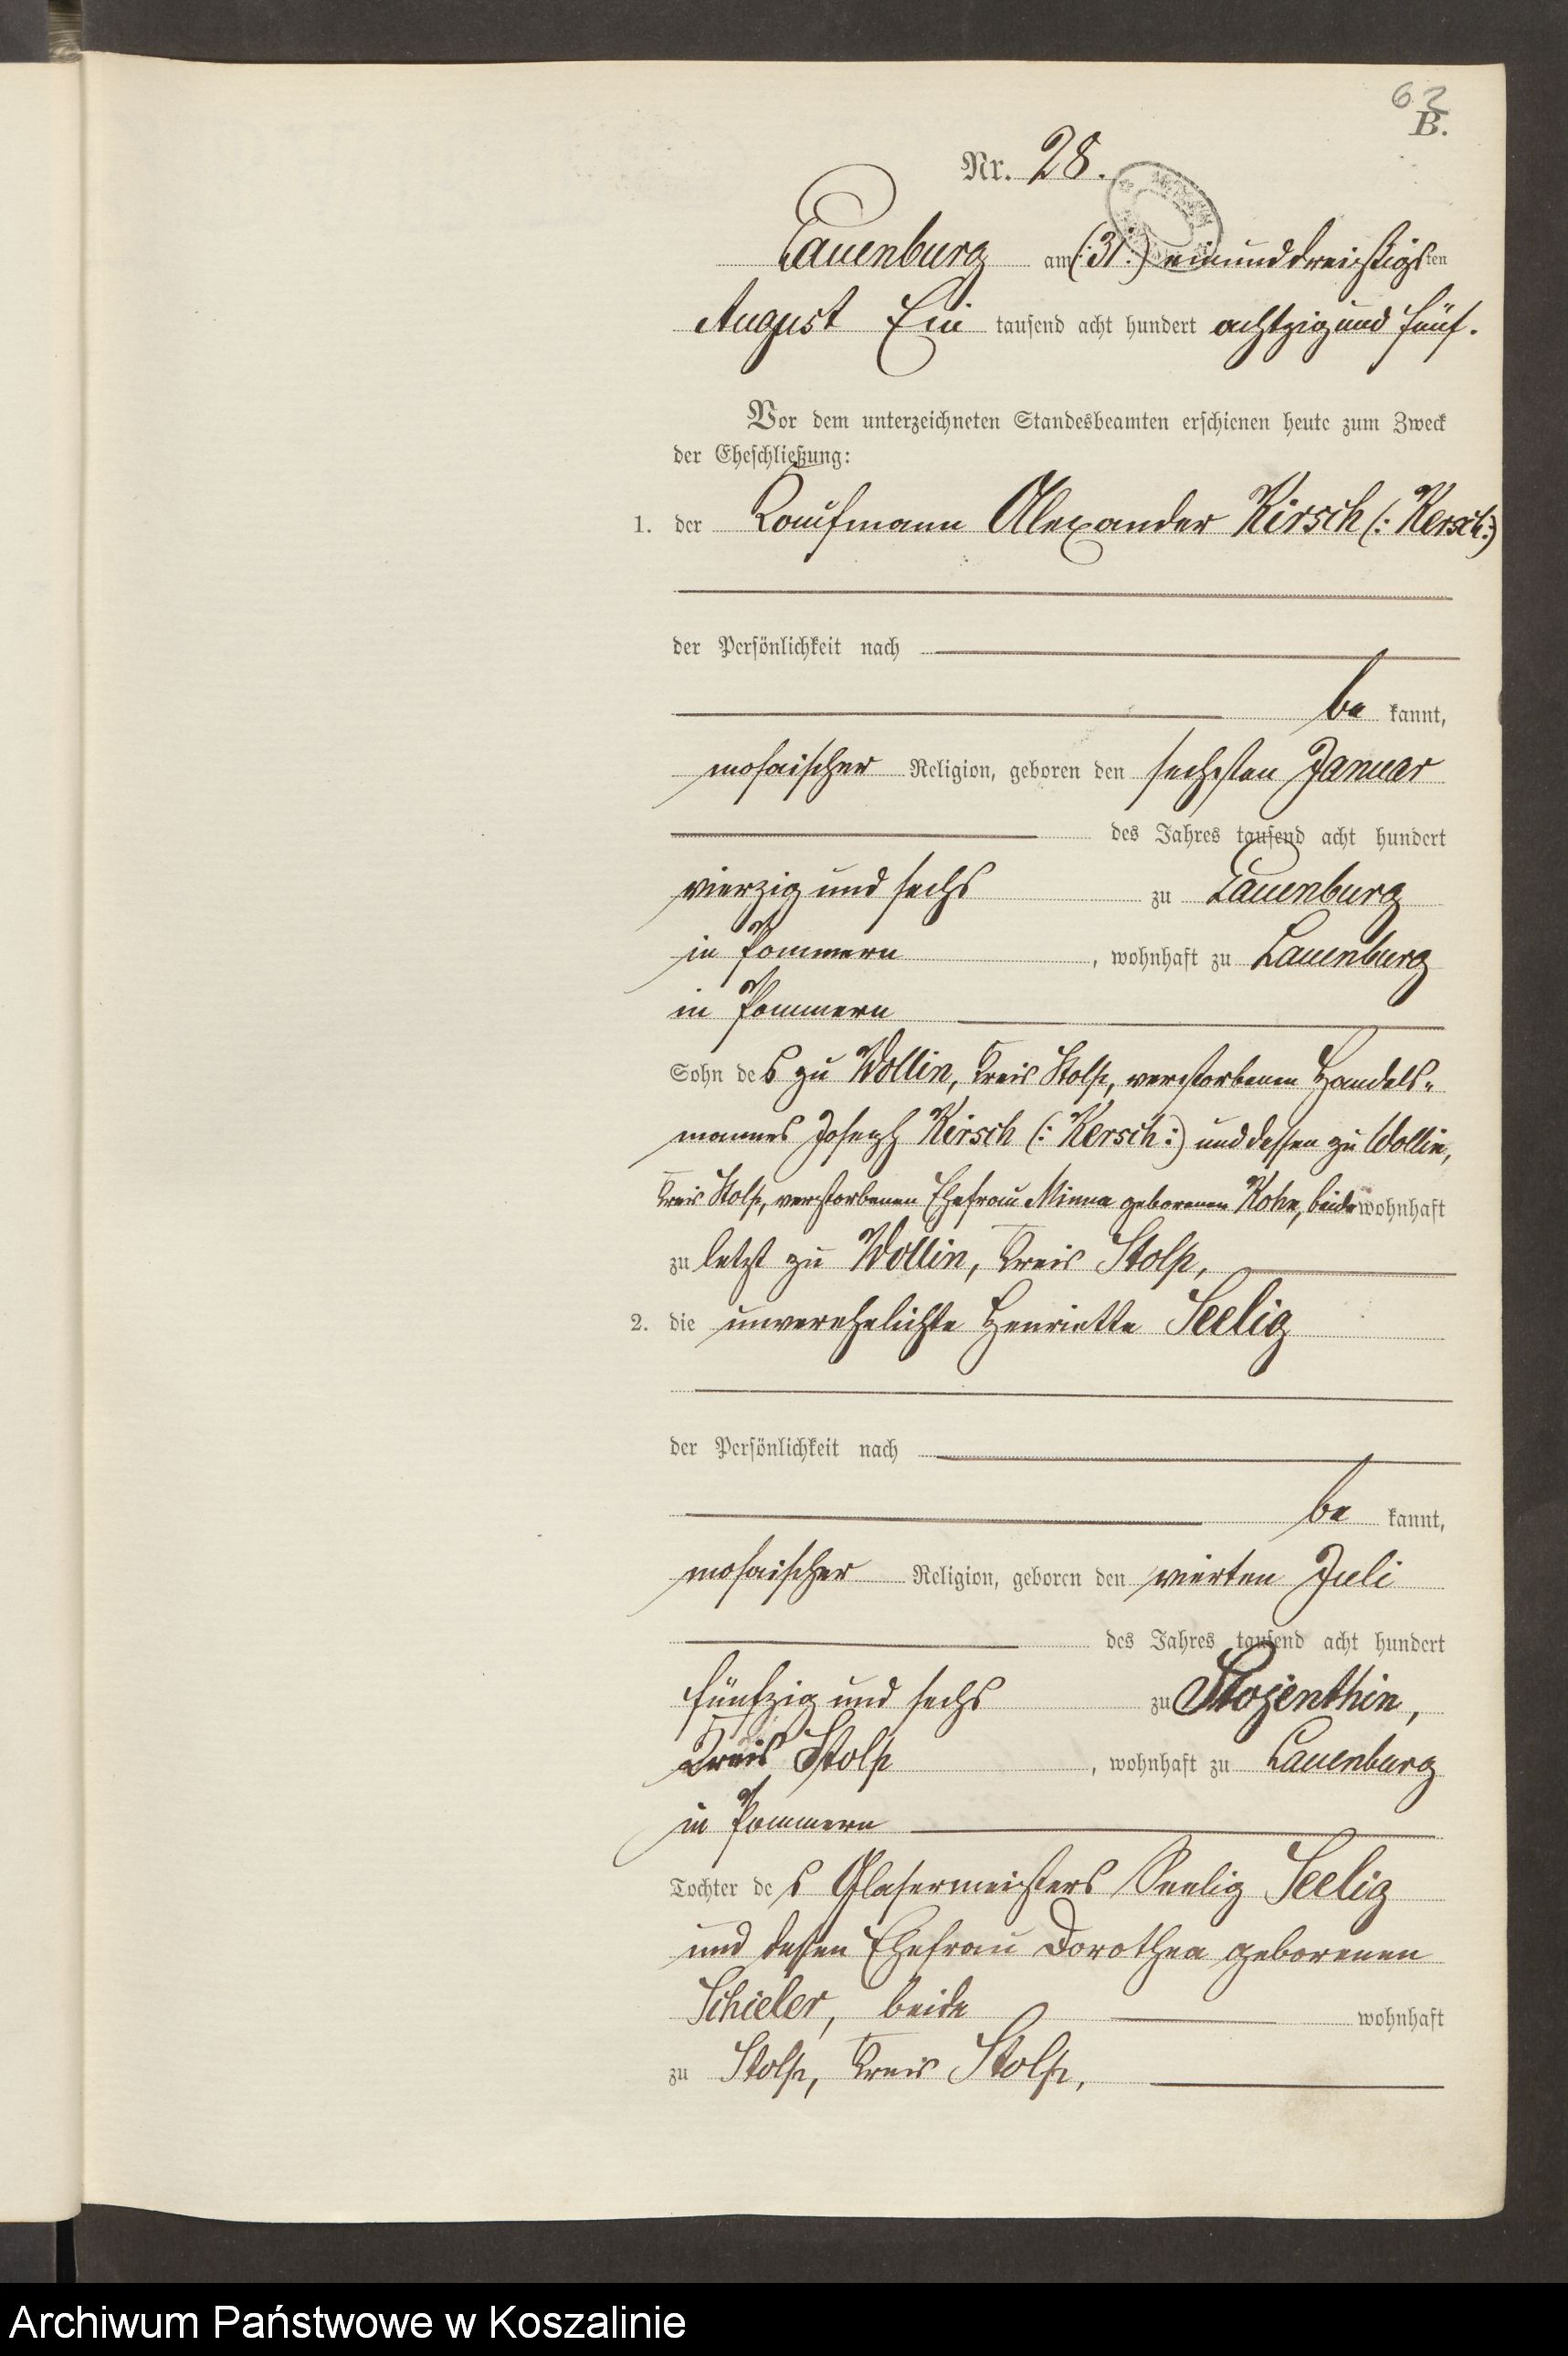 62
B.
Nr. 28.
Lauenburg am (:31:) einunddreißigsten
August Ein tausend acht hundert achtzig und fünf.
Vor dem unterzeichneten Standesbeamten erschienen heute zum Zweck
der Eheschließung:
1. der Kaufmann Alexander Kirsch (: Kersch:)
der Persönlichkeit nach
be kannt,
mosaischer Religion, geboren den sechsten Januar
des Jahres tausend acht hundert
vierzig und sechs zu Lauenburg
in Pommern, wohnhaft zu Lauenburg
in Pommern
Sohn des zu Wollin, Kreis Stolp, verstorbenen Handels-
mannes Joseph Kirsch (: Kersch:) und dessen zu Wollin,
Kreis Stolp, verstorbenen Ehefrau Minna geborenen Kohn, beide wohnhaft
zu letzt zu Wollin, Kreis Stolp,
2. die unverehelichte Henriette Seelig
der Persönlichkeit nach
be kannt,
mosaischer Religion, geboren den vierten Juli
des Jahres tausend acht hundert
fünfzig und sechs zu Stojenthin,
Kreis Stolp, wohnhaft zu Lauenburg
in Pommern
Tochter des Glasermeisters Seelig Seelig
und dessen Ehefrau Dorothea geborenen
Schieler, beide wohnhaft
zu Stolp, Kreis Stolp,
Archiwum Państwowe w Koszalinie